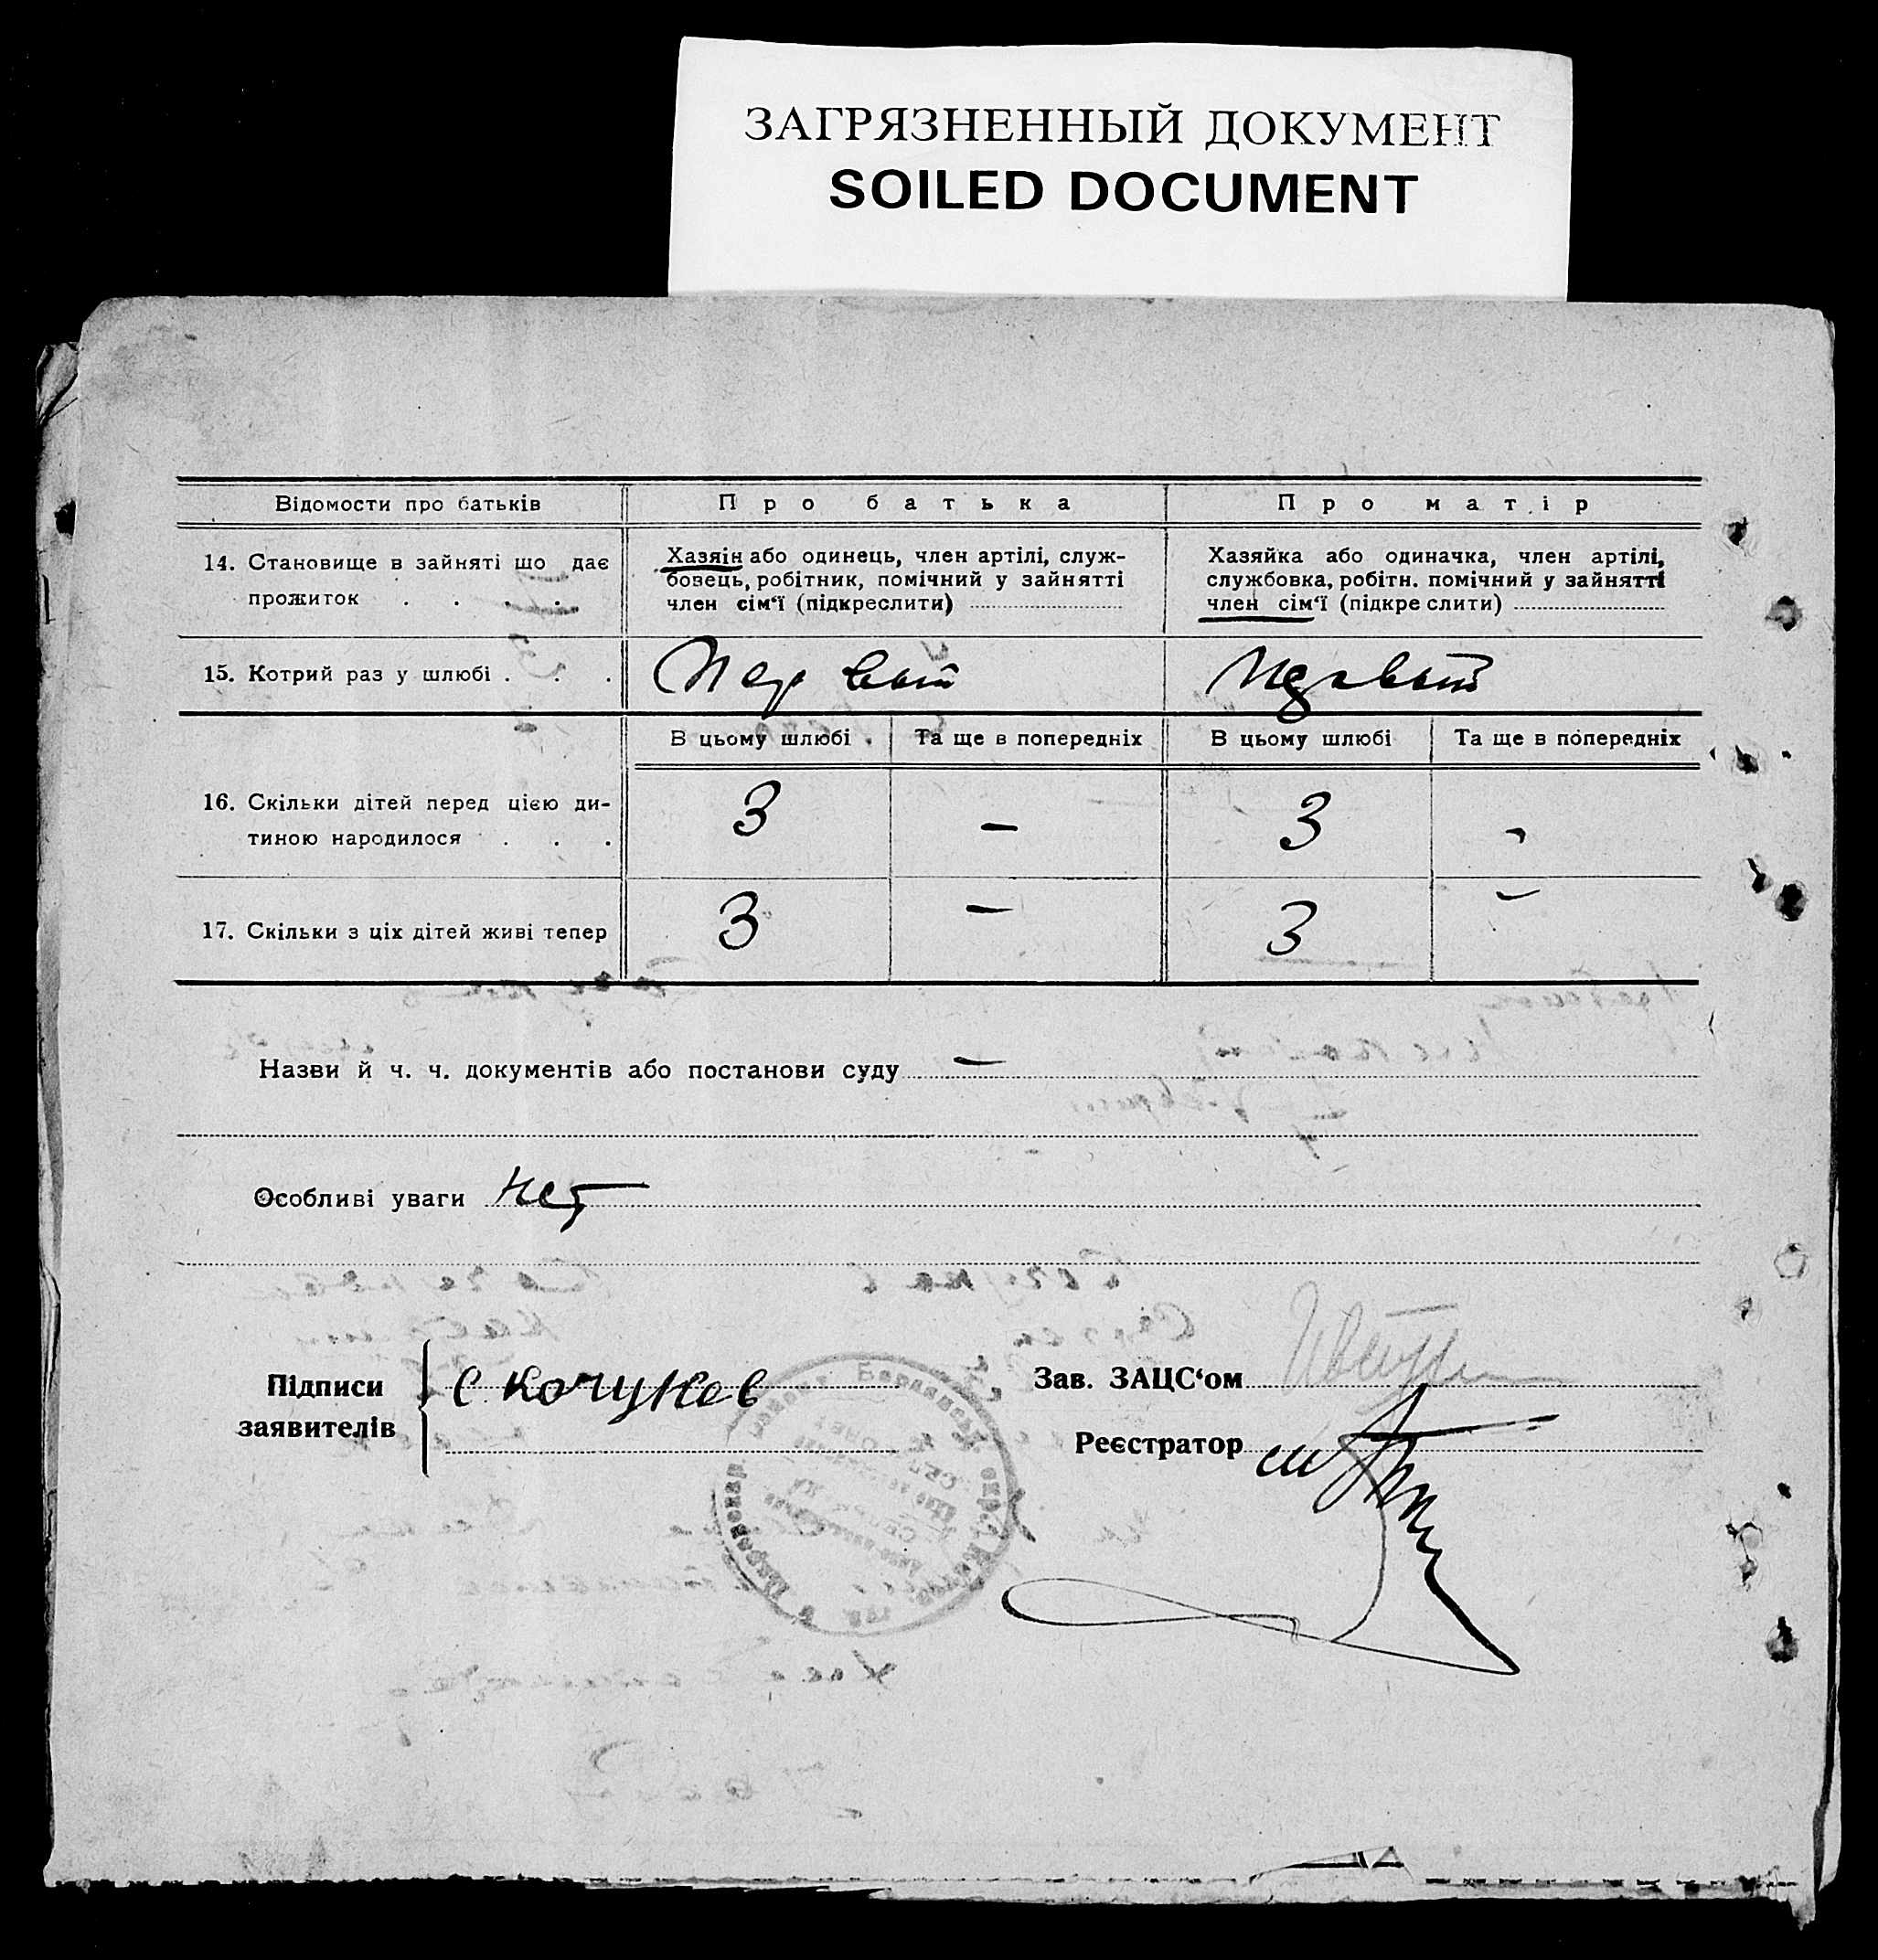 ЗАГРЯЗНЕННЫЙ ДОКУМЕНТ
SOILED DOCUMENT
Відомости про батьків
Про батька
Про матір
14. Становище в зайняті що дає
прожиток . . . .
Хазяін або одинець, член артілі, служ-
бовець, робітник, помічний у зайнятті
член сім‘ї (підкреслити)
Хазяйка або одиначка, член артілі,
службовка, робітн. помічний у зайнятті
член сім‘ї (підкреслити)
15. Котрий раз у шлюбі . . .
Первый
Первый
В цьому шлюбі
Та ще в попередніх
В цьому шлюбі
Та ще в попередніх
16. Скільки дітей перед цією ди-
тиною народилося . . .
3 – 3 -
17. Скільки з ціх дітей живі тепер
3 – 3 -
Назви й ч. ч. документів або постанови суду –
Особливі уваги нет
Підписи
заявителів
С Кочунов
Зав. ЗАЦС‘ом
Реєстратор